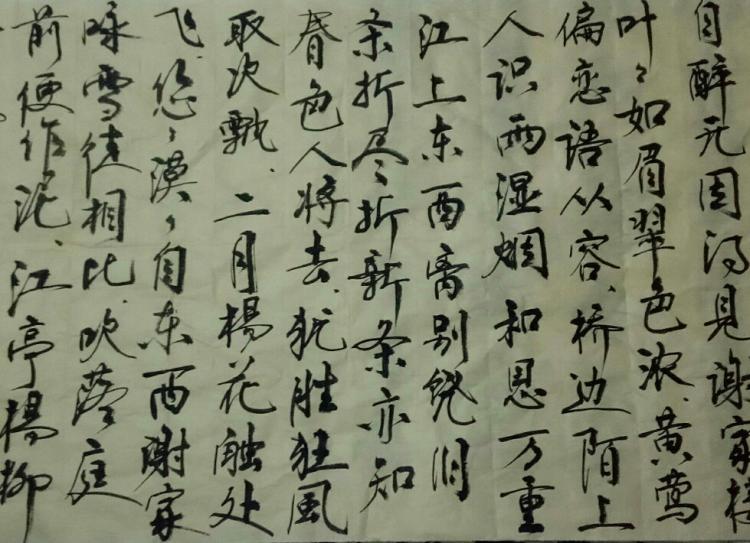 自醉无因得见谢家楼
叶々如眉翠色浓、黄莺
偏恋语从容、桥边陌上
人识雨湿烟和思万重
江上东西离别饶旧
条折尽折新条亦知
春色人将去、犹胜狂風
取次飘、二月楊花触处
飞、悠々漠々自东西谢家
咏雪徒相比、吹落庭
前便作泥、江亭楊柳